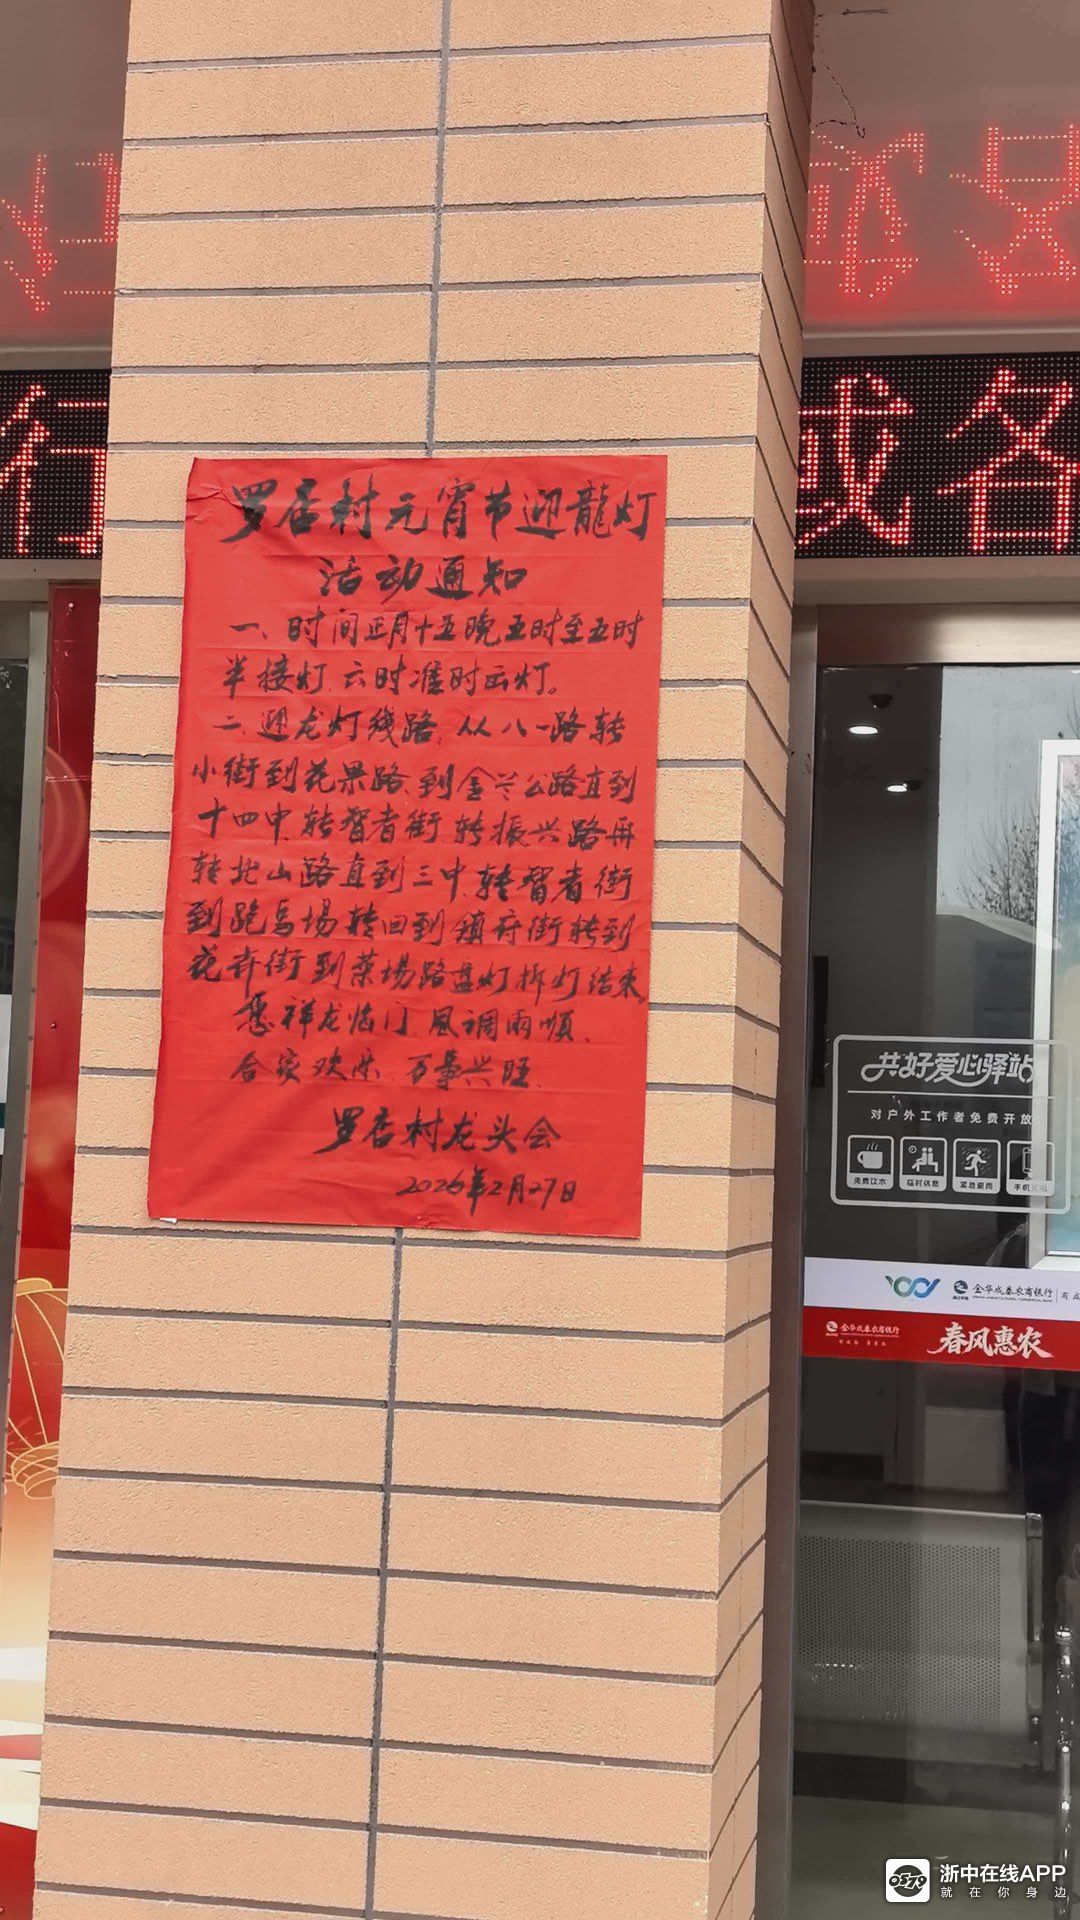 行
或名
罗店村元宵节迎龍灯
活动通知
一、时间正月十五晚五时至五时
半接灯、六时准时出灯。
二、迎龙灯线路、从八一路转
小街到花果路、到金兰公路直到
十四中、转智者街、转振兴路再
转北山路直到三中、转智者街
到跑马场转回到镇府街转到
花卉街到菜场路盘灯拆灯结束
祥龙临门、風调雨順、
合家欢乐、万事兴旺、
罗店村龙头会
2026年2月27日
共好爱心驿站
对户外工作者免费开放
免费饮水 临时休息 紧急避雨 手机充电
金华成泰农商银行 有成
金华成泰农商银行
春风惠农
0579
浙中在线APP
就在你身边